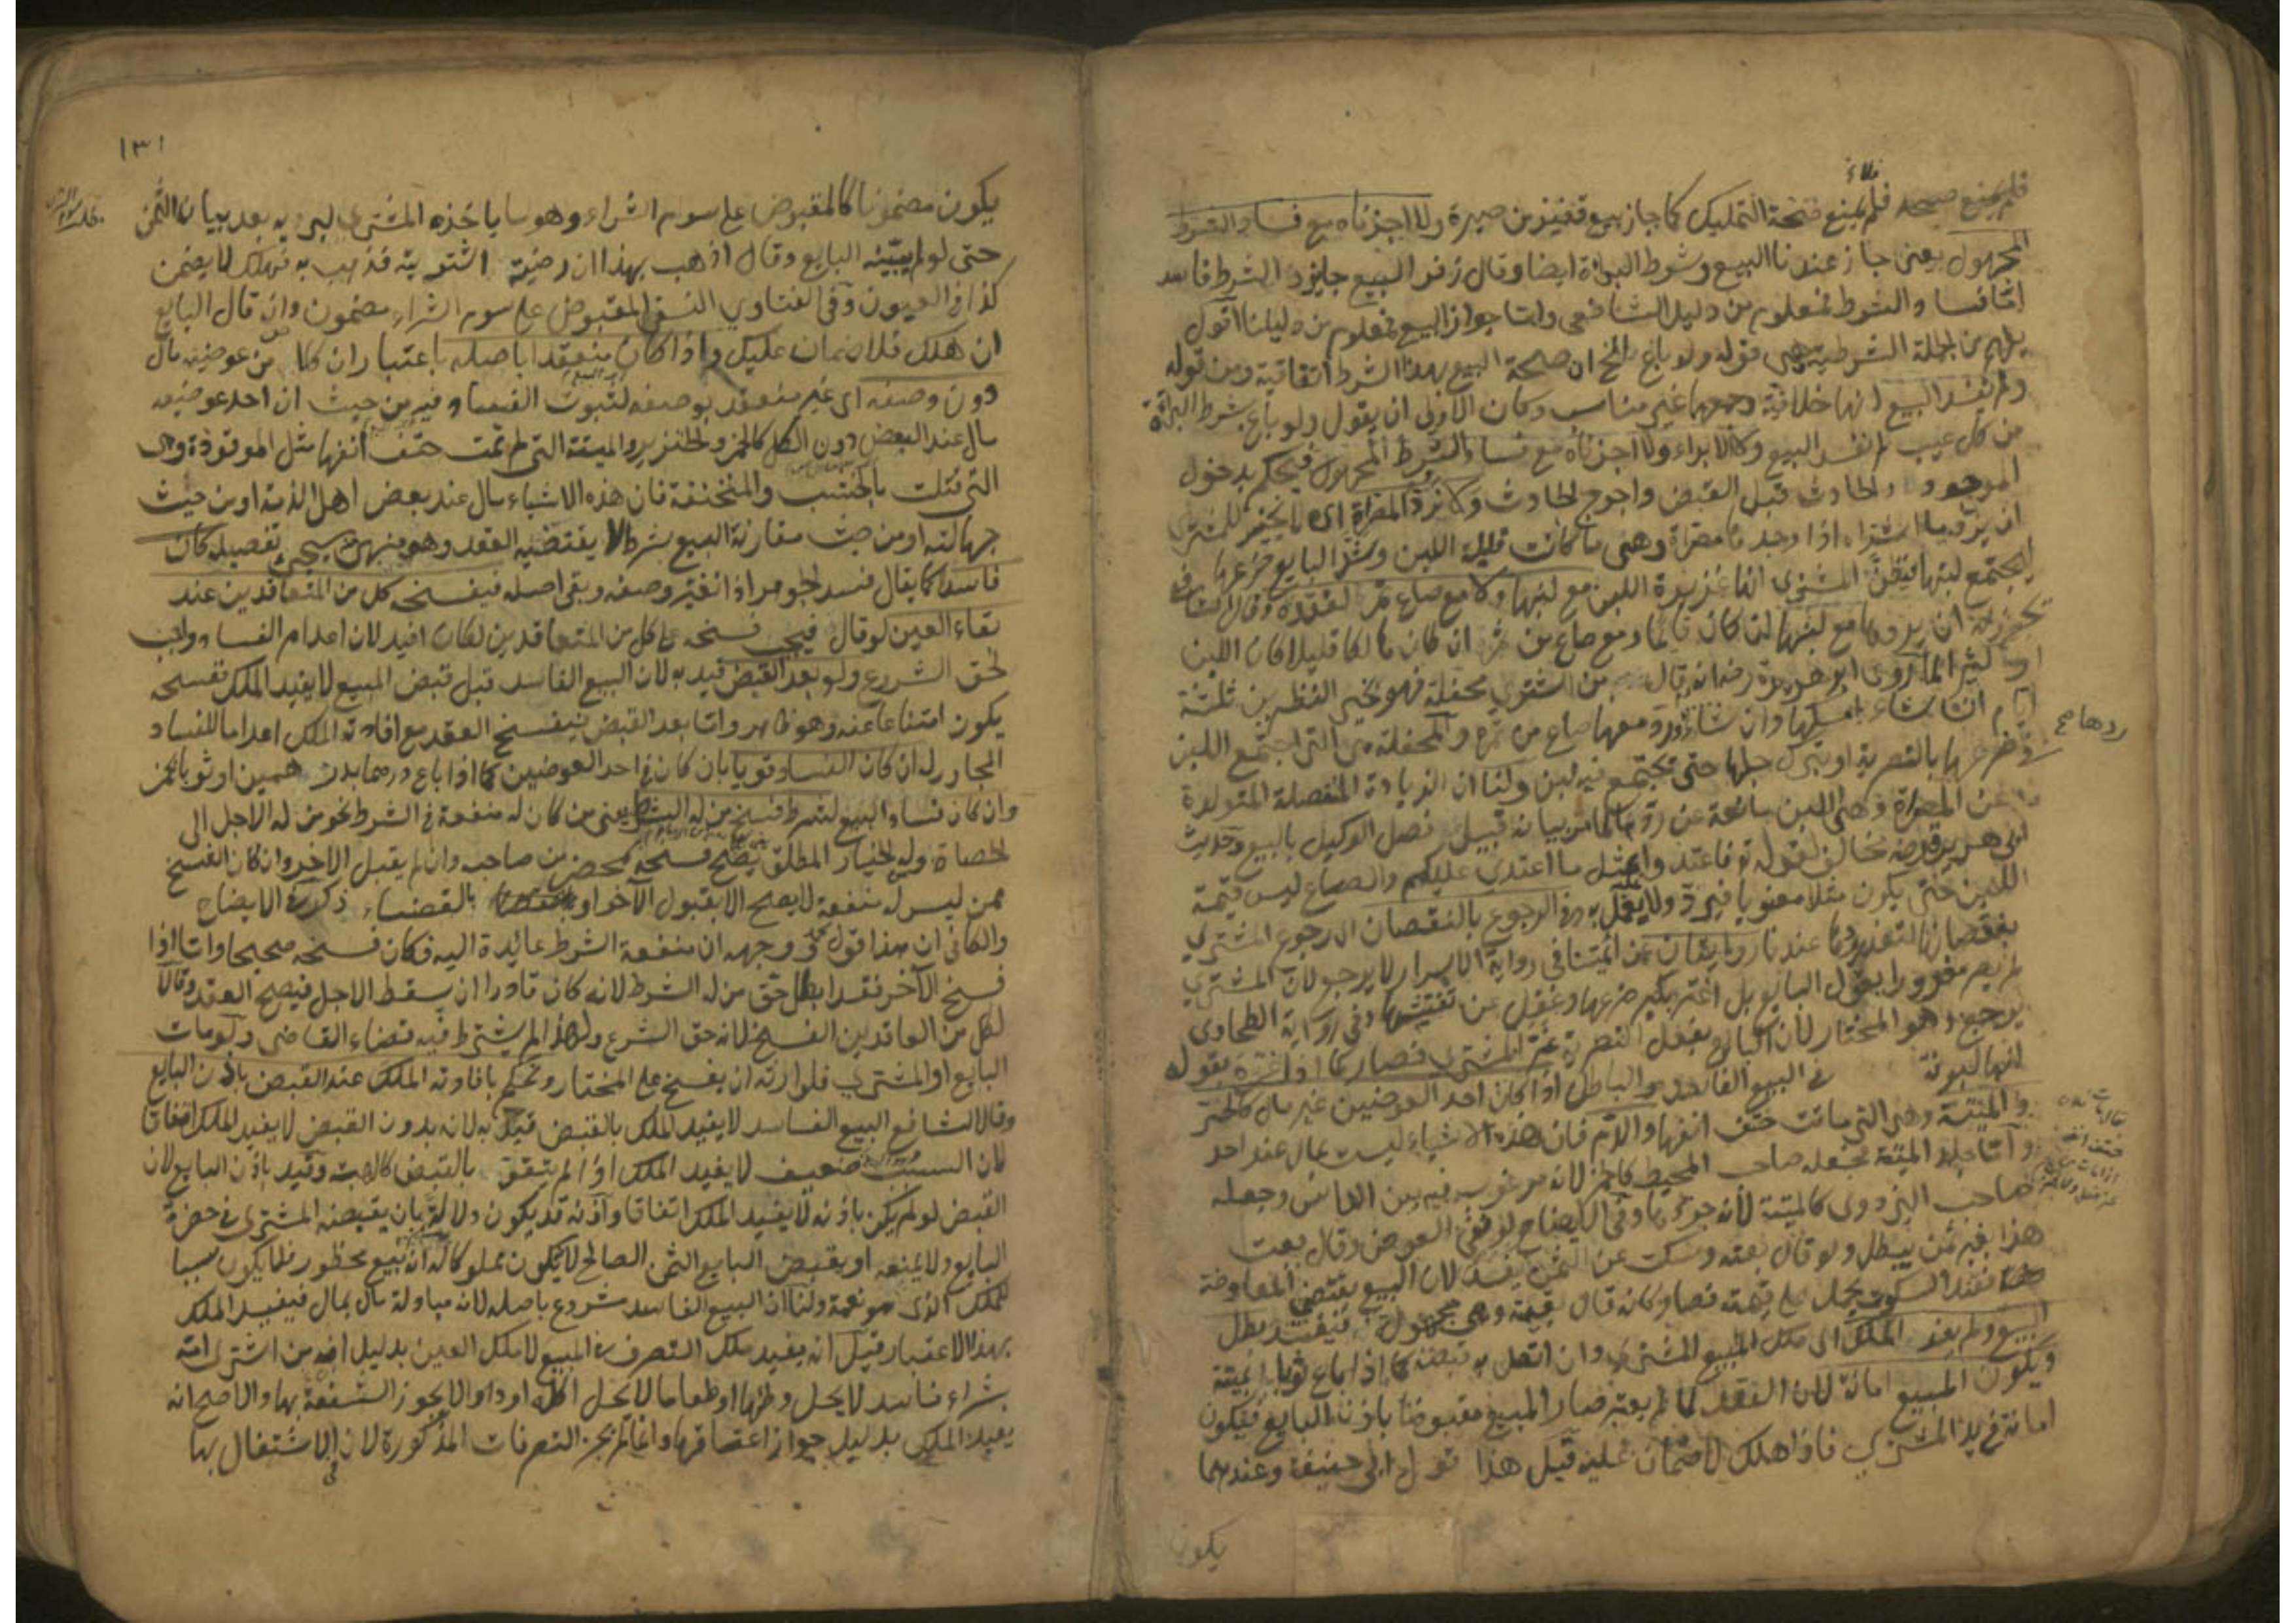 فلم يمنع صحة التمليك كما جاز بيع قفيز من صبرة ولا اجزناه مع فساد الشرط
المجهول يعني جاز عندنا البيع وشرط البراة ايضا وقال زفر البيع جايز والشرط فاسد
والشرط فمعلوم من دليل الشافعي واما جواز البيع فمعلوم من دليلنا اقول
يلهم من الجملة الشرطية وهي قوله ولو باع الخ ان صحة البيع بهذا الشرط اتفاقية ومن قوله
ولم نفسد البيع انها خلافية وجمعها غير مناسب وكان الاولى ان يقول ولو باع بشرط البراة
من كل عيب لم نفسد البيع وكالابراء ولا اجزناه مع فساد الشرط المجهول فيحكم بدخول
الموجود والحادث قبل القبض واخرج الحادث وكا نرد المصراة اي لا تخيير للمشتري
ان يرد ما اشتراه اذا وجدها مصراة وهي ما كانت قليلة اللبن وشد البايع ضرعها
ليجتمع لبنها فيظن المشتري انها غزيرة اللبن مع لبنها ولا مع صاع تمر لفقده وقال الشافعي
يجوز له ان يردها مع لبنها ان كان قايما ومع صاع من تمر ان كان هالكا قليلا كان اللبن
او كثيرا لما روى ابو هريرة رضه انه قال من اشترى محفلة فهو بخير النظرين ثلثة
ايام ان شاء امسكها وان شاء ورد معها صاع من تمر والمحفلة هي التي اجتمع اللبن
في ضرعها بالتصرية او بترك حلبها حتى يجتمع فيه لبن ولنا ان الزيادة المنفصلة المتولدة
عن المصراة وهي اللبن مانعة عن ردها كما مر بيانه قبيل فصل الوكيل بالبيع وحديث
ابي هريرة رضه مخالف لقوله تع فاعتدوا بمثل ما اعتدي عليكم والصاع ليس قيمة
اللبن حتى يكون مثلا معنويا فيرد ولا يعمل به وفي الرجوع بالنقصان اي رجوع المشتري
بنقصانها لتعذر ردها عندنا روايتان عن ائمتنا في رواية الاسرار لا يرجع لان المشتري
لم يصر مغرورا بقول البايع بل اغتر بكبر ضرعها وغفل عن تفتيشها وفي رواية الطحاوي
يرجع وهو المختار لان البايع بفعل التصرية غر المشتري فصار كما اذا غره بقوله
انها لبونة في البيع الفاسد والباطل اذا كان احد العوضين غير مال كالحر
والميتة وهي التي ماتت حتف انفها والدم فان هذه الاشياء ليست بمال عند احد
واما جلد الميتة فجعله صاحب المحيط كالخمر لانه مرغوب فيه بين الناس وجعله
صاحب البزدوي كالميتة لانه جزءها وفي الايضاح لو نفى العوض وقال بعت
هذا بغير ثمن يبطل ولو قال بعته وسكت عن الثمن يفسد لان البيع يقتضي المعاوضة
فعند السكوت يحمل على قيمته فصار كانه قال بقيمته وهي مجهولة فيفسد بطل
البيع ولم يفد الملك اي ملك المبيع المشتري وان اتصل به قبضه كما اذا باع ثوبا بميتة
ويكون المبيع امانة لان العقد لما لم يعتبر صار المبيع مقبوضا باذن البايع فيكون
امانة في يد المشتري فاذا هلك لا ضمان عليه قيل هذا قول ابي حنيفة وعندهما
يكون
ردها صح
١٣١
يكون مضمونا كالمقبوض على سوم الشراء وهو ما ياخذه المشتري ليريه بعد بيان الثمن
حتى لو لم يبينه البايع وقال اذهب بهذا ان رضيته اشتريته فذهب به فهلك لا يضمن
كذا في العيون وفي الفتاوي النسفي المقبوض على سوم الشراء مضمون وان قال البايع
ان هلك فلا ضمان عليك واذا كان منعقدا باصله باعتبار ان كلا من عوضيه مال
دون وصفه اي غير منعقد بوصفه لثبوت الفساد فيه من حيث ان احد عوضيه
مال عند البعض دون الكل كالخمر والخنزير والميتة التي لم تمت حتف انفها مثل الموقوذة وهي
التي قتلت بالخشب والمنخنقة فان هذه الاشياء مال عند بعض اهل الذمة او من حيث
جهالته او من حيث مقارنة البيع بشرط لا يقتضيه العقد وهو منهي سيجيء تفصيله كان
فاسدا كما يقال فسد الجوهر اذا تغير وصفه وبقي اصله فيفسخه كل من المتعاقدين عند
بقاء العين لو قال فيجب فسخه على كل من المتعاقدين لكان افيد لان اعدام الفساد واجب
لحق الشرع ولو بعد القبض قيد به لان البيع الفاسد قبل قبض المبيع لا يفيد الملك ففسخه
يكون امتناعا عنه وهو ظاهر واما بعد القبض فيفسخ العقد مع افادته الملك اعداما للفساد
المجاور له ان كان الفساد قويا بان كان في احد العوضين كما اذا باع درهما بدرهمين او ثوبا بخمر
وان كان فساد البيع لشرط فسخ من له الشرط يعني من كان له منفعة في الشرط نحو من له الاجل الى
الحصاد وله الخيار المطلق يصح فسخه بمحضر من صاحبه وان لم يقبل الاخر وان كان الفسخ
ممن ليس له منفعة لا يصح الا بقبول الآخر او بالقضاء ذكره في الايضاح
والكافي ان هذا قول محمد وجهه ان منفعة الشرط عائدة اليه فكان فسخه صحيحا واما اذا
فسخ الآخر فقد ابطل حق من له الشرط لانه كان قادرا ان يسقط الاجل فيصح العقد وقالا
لكل من العاقدين الفسخ لانه حق الشرع ولهذا لم يشترط فيه قضاء القاضي ولو مات
البايع او المشتري فلوارثه ان يفسخ على المختار ونحكم بافادته الملك عند القبض باذن البايع
وقال الشافعي البيع الفاسد لا يفيد الملك بالقبض قيد به لانه بدون القبض لا يفيد الملك اتفاقا
لان السبب ضعيف لا يفيد الملك اذا لم يتقو بالقبض كالهبة وقيد باذن البايع لان
القبض لو لم يكن باذنه لا يفيد الملك اتفاقا واذنه قد يكون دلالة بان يقبضه المشتري في حضرة
البايع ولا يمنعه او يقبض البايع الثمن الصالح لا يكون مملوكا له انه بيع محظور فلا يكون سببا
للملك الذي هو نعمة ولنا ان البيع الفاسد مشروع باصله لانه مبادلة مال بمال فيفيد الملك
بهذا الاعتبار قيل انه يفيد ملك التصرف في المبيع لا ملك العين بدليل ان من اشترى امة
شراء فاسدا لا يحل وطؤها او طعاما لا يحل اكله او دارا لا يجوز الشفعة بها والاصح انه
يفيد الملك بدليل جواز اعتاقها وانما لم يجز التصرفات المذكورة لان في الاشتغال بها